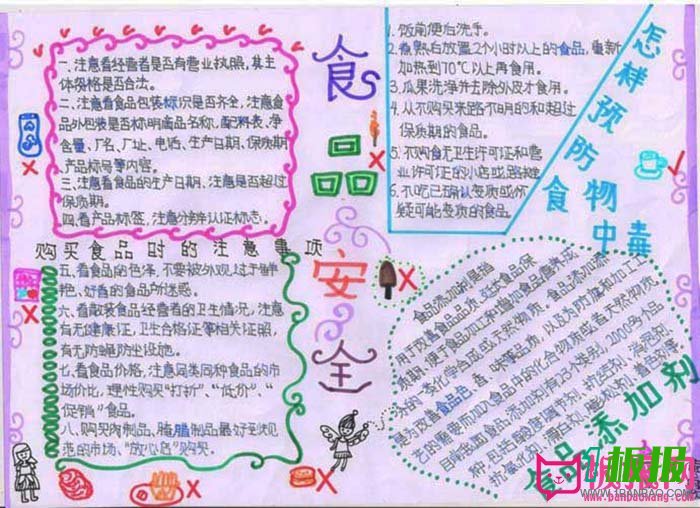 一、注意看经营者是否有营业执照,其主
体资格是否合法。
二、注意看食品包装标识是否齐全,注意食
品外包装是否标明商品名称、配料表、净
含量、厂名、厂址、电话、生产日期、保质期、
产品标号等内容。
三、注意看食品的生产日期、注意是否超过
保质期。
四、看产品标签,注意分辨认证标志。
购买食品时的注意事项
五、看食品的色泽,不要被外观过于鲜
艳、好看的食品所迷惑。
六、看散装食品经营者的卫生情况,注意
有无健康证,卫生合格证等相关证照,
有无防蝇防尘设施。
七、看食品价格,注意同类同种食品的市
场价比,理性购买“打折”、“低价”、“
促销”食品。
八、购买肉制品、腊腊制品最好到规
范的市场、“放心店”购买。
食品安全
1、饭前便后洗手。
2、煮熟后放置2个小时以上的食品,重新
加热到70℃以上再食用。
3、瓜果洗净并去除外皮才食用。
4、从不购买来路不明的和超过
保质期的食品。
5、不购食无卫生许可证和营
业许可证的小店或路摊
6、不吃已确认变质或怀
疑可能变质的食品。
怎样预防食物中毒
食品添加剂是指
用于改善食品品质、延长食品保
质期、便于食品加工和增加食品营养成
分的一类化学合成或天然物质
是为改善食品色、香、味等品质,以及为防腐和加工工
艺的需要而加入食品中的化合物质或者天然物质
目前我国食品添加剂有23个类别,2000多个品
种,包括
食品添加剂
板报
www.banbaowang.com